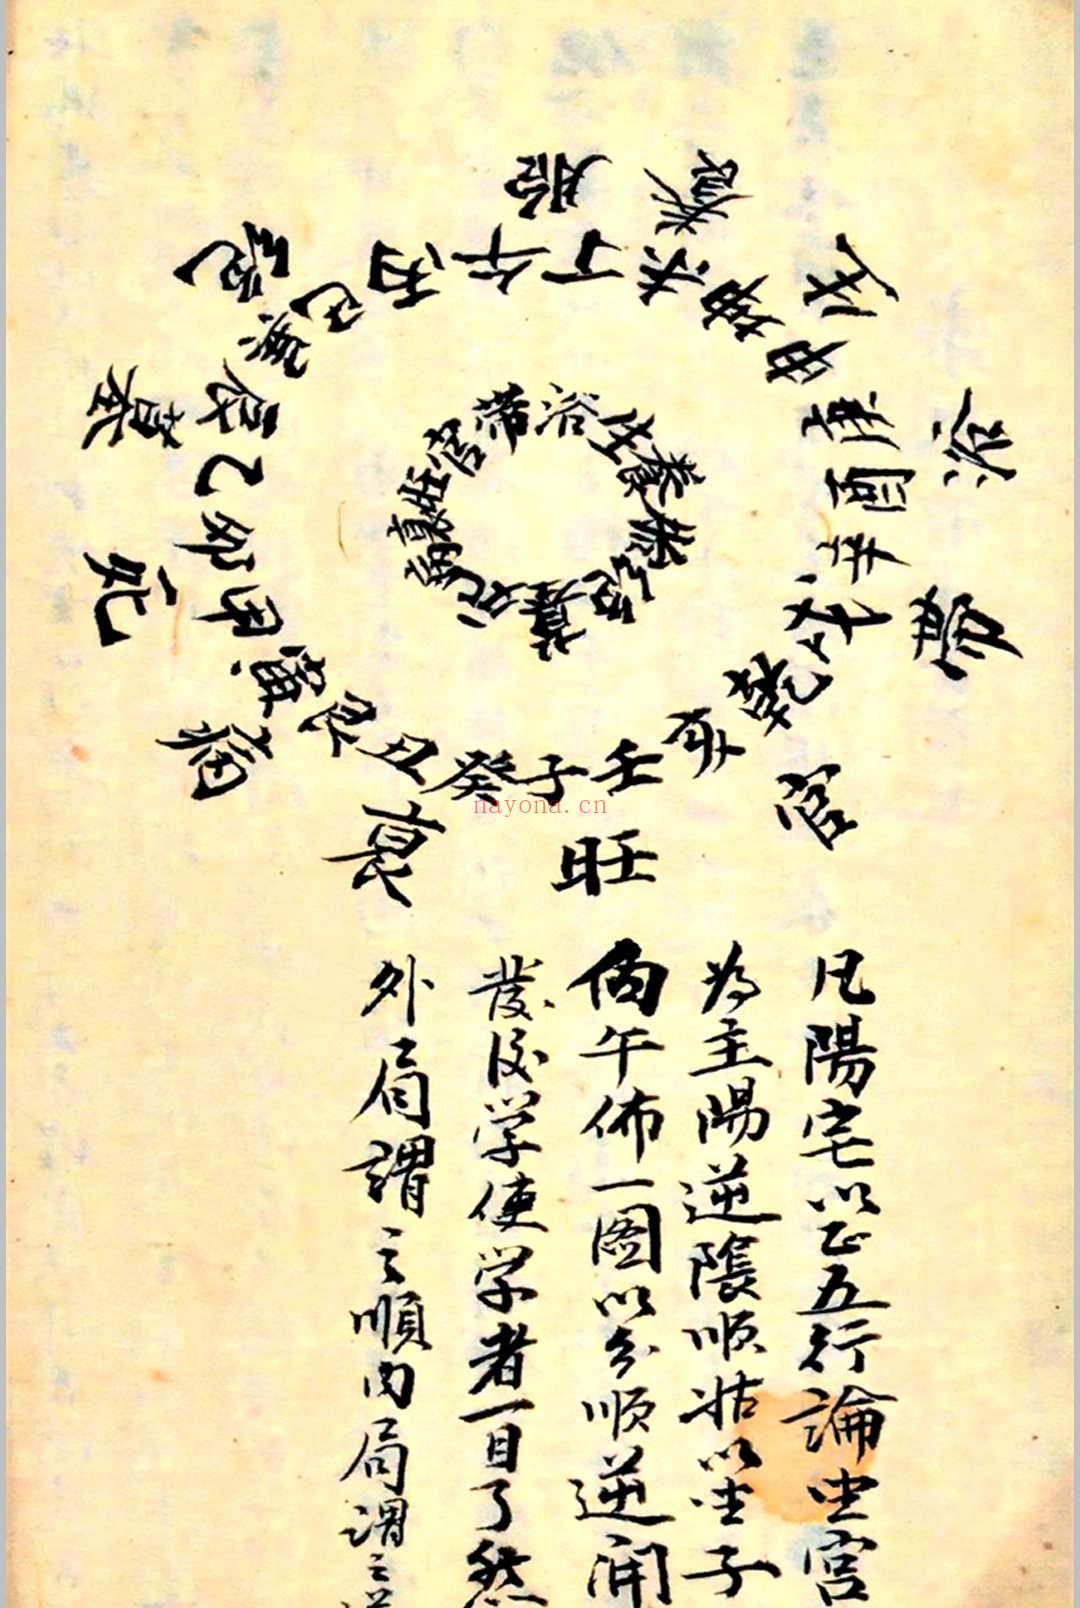 胎
養
生
浴
帶
官
旺
衰
病
死
墓
絕
丙午丁未坤申庚酉辛戌乾亥壬子癸丑艮寅甲卯乙辰巽巳
帶浴生養胎絕墓死病衰旺官
nayona.cn
凡陽宅以正五行論坐宮
為主陽逆陰順姑以坐子
向午佈一圖以分順逆開
發後学使学者一目了然
外局謂之順內局謂之逆